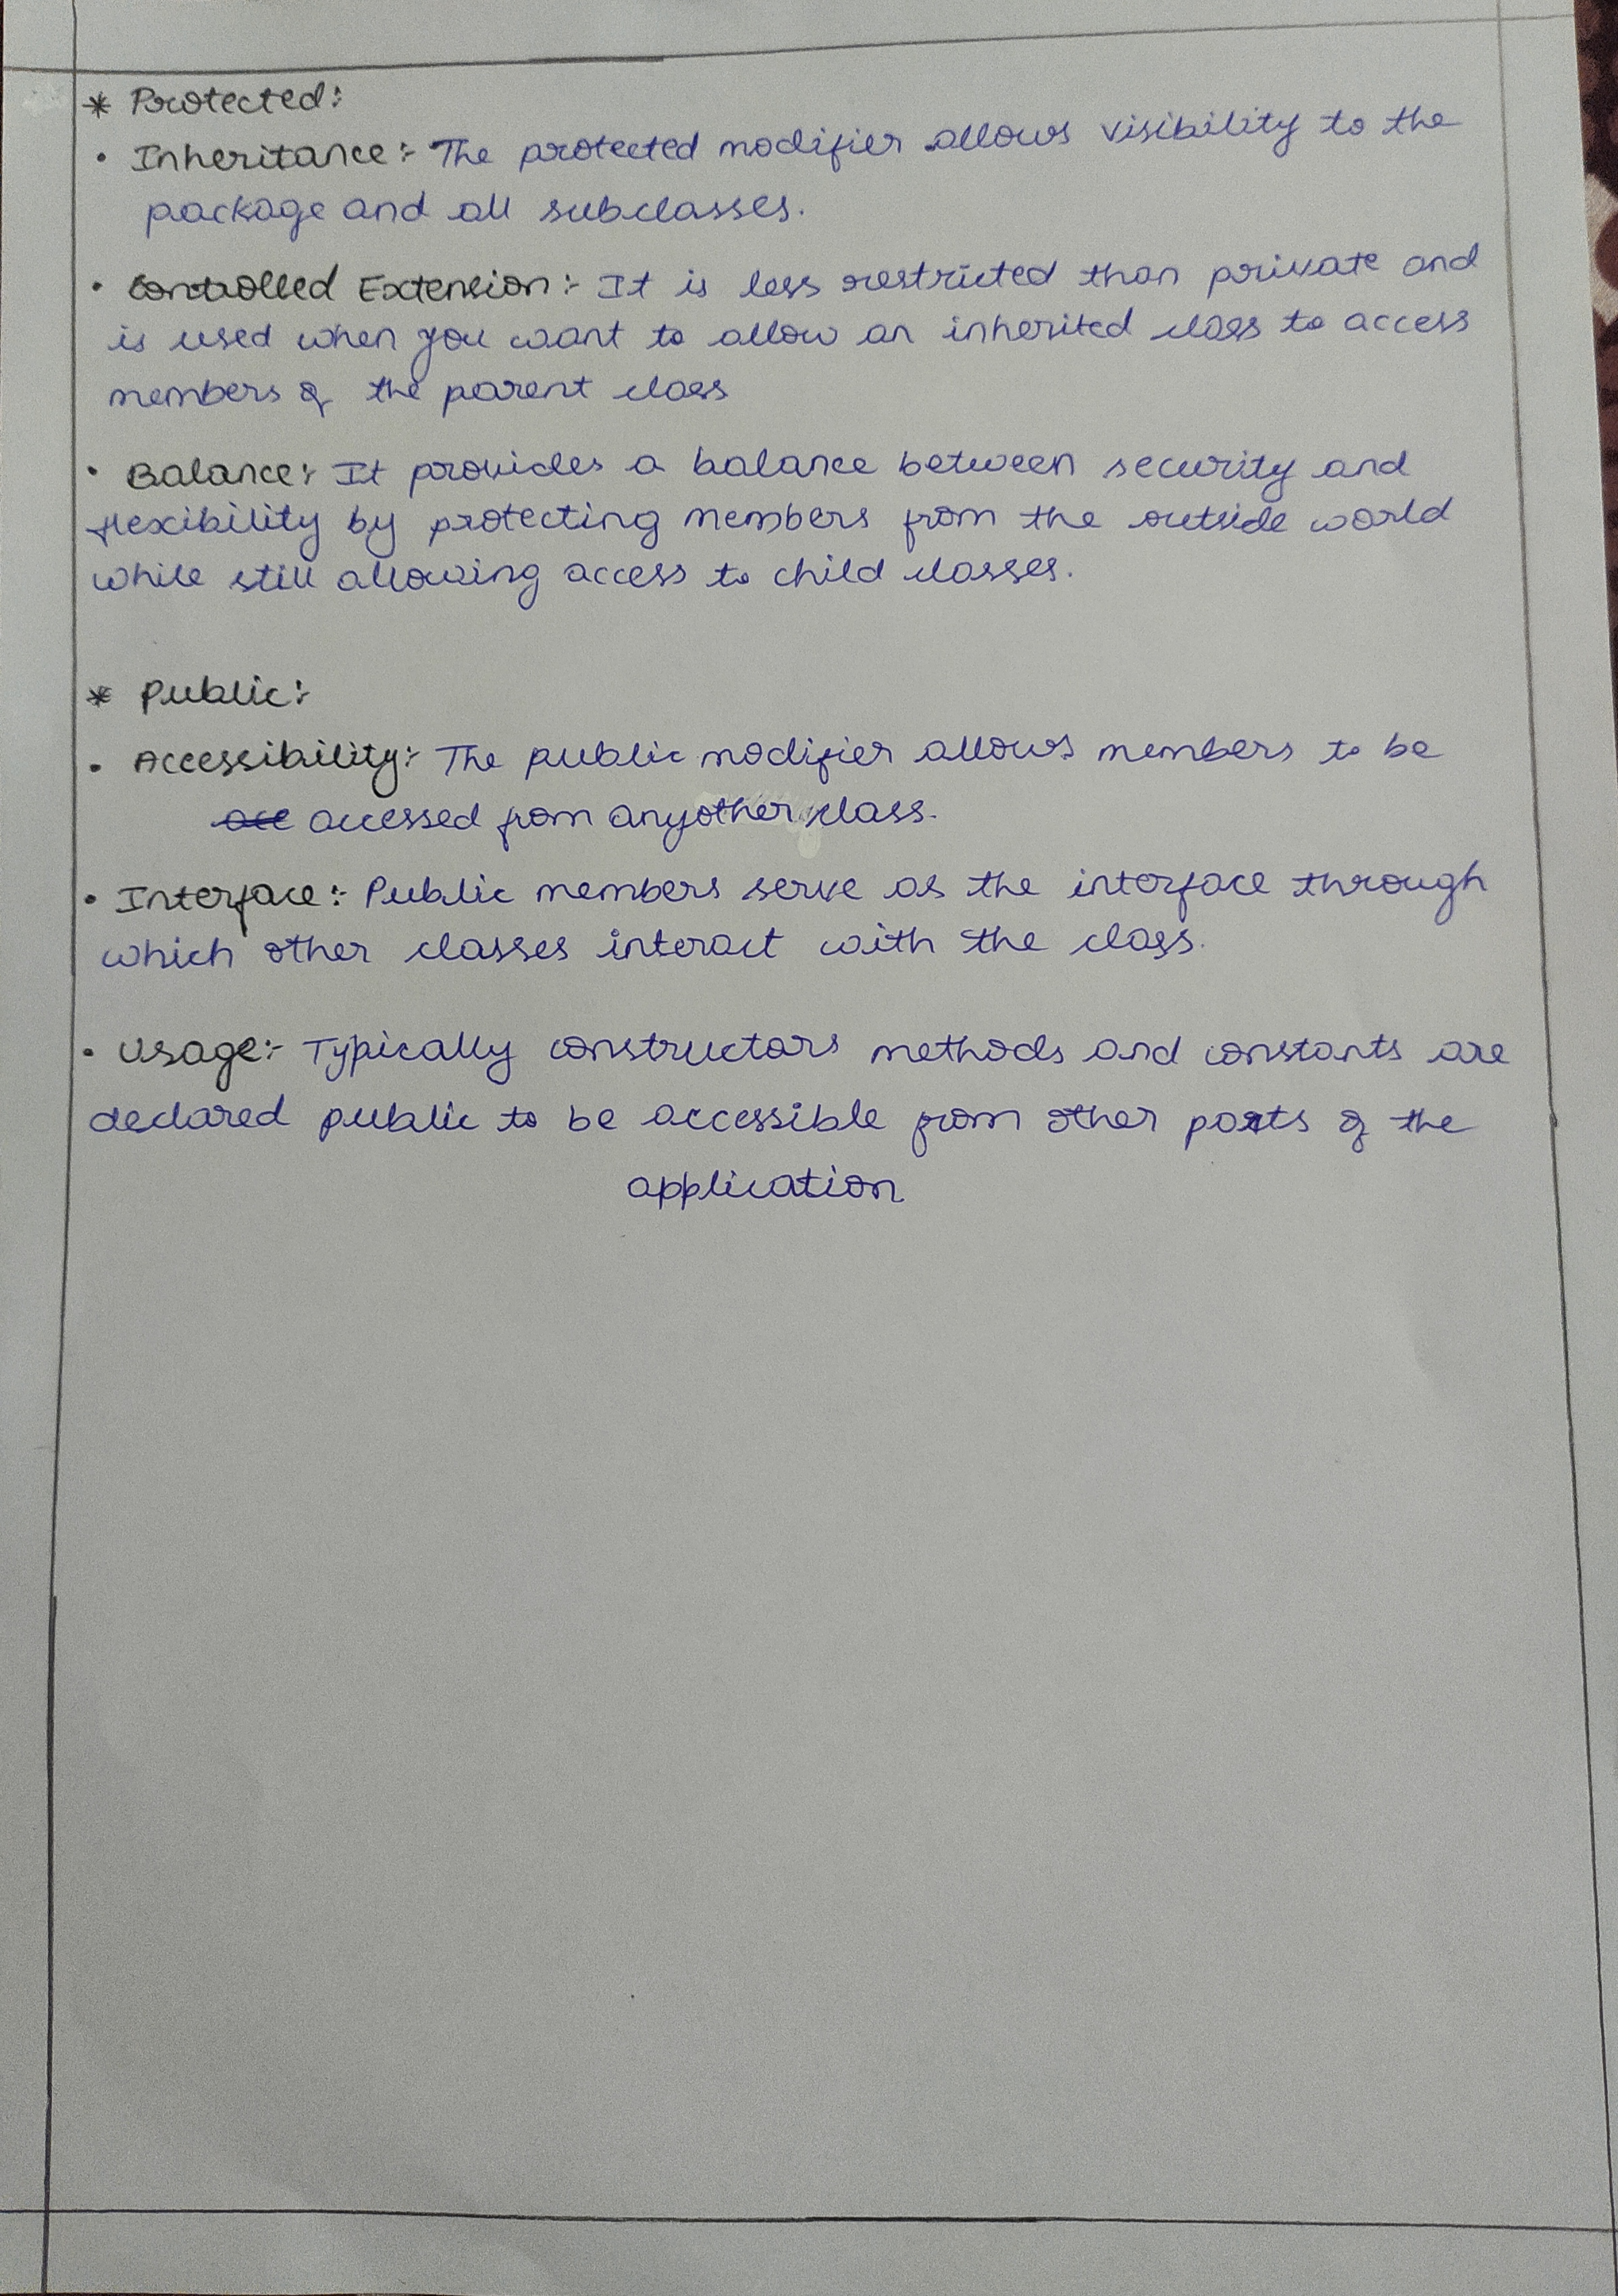 * Protected:-
• Inheritance:- The protected modifier allows visibility to the
package and all subclasses.
• Controlled Extension:- It is less restricted than private and
is used when you want to allow an inherited class to access
members of the parent class
• Balance:- It provides a balance between security and
flexibility by protecting members from the outside world
while still allowing access to child classes.
* Public:-
• Accessibility:- The public modifier allows members to be
acc accessed from anyother class.
• Interface:- Public members serve as the interface through
which other classes interact with the class.
• Usage:- Typically constructors methods and constants are
declared public to be accessible from other parts of the
application